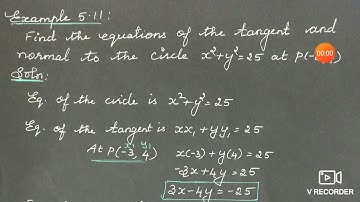 Example 5.11:
Find the equations of the tangent and
normal to the circle x²+y²=25 at P(-
00:00
Soln:
Eq. of the circle is x²+y²=25
Eq. of the tangent is xx₁+yy₁=25
x₁ y₁
At P(-3, 4) x(-3)+y(4)=25
-3x+4y=25
3x-4y=-25
V RECORDER